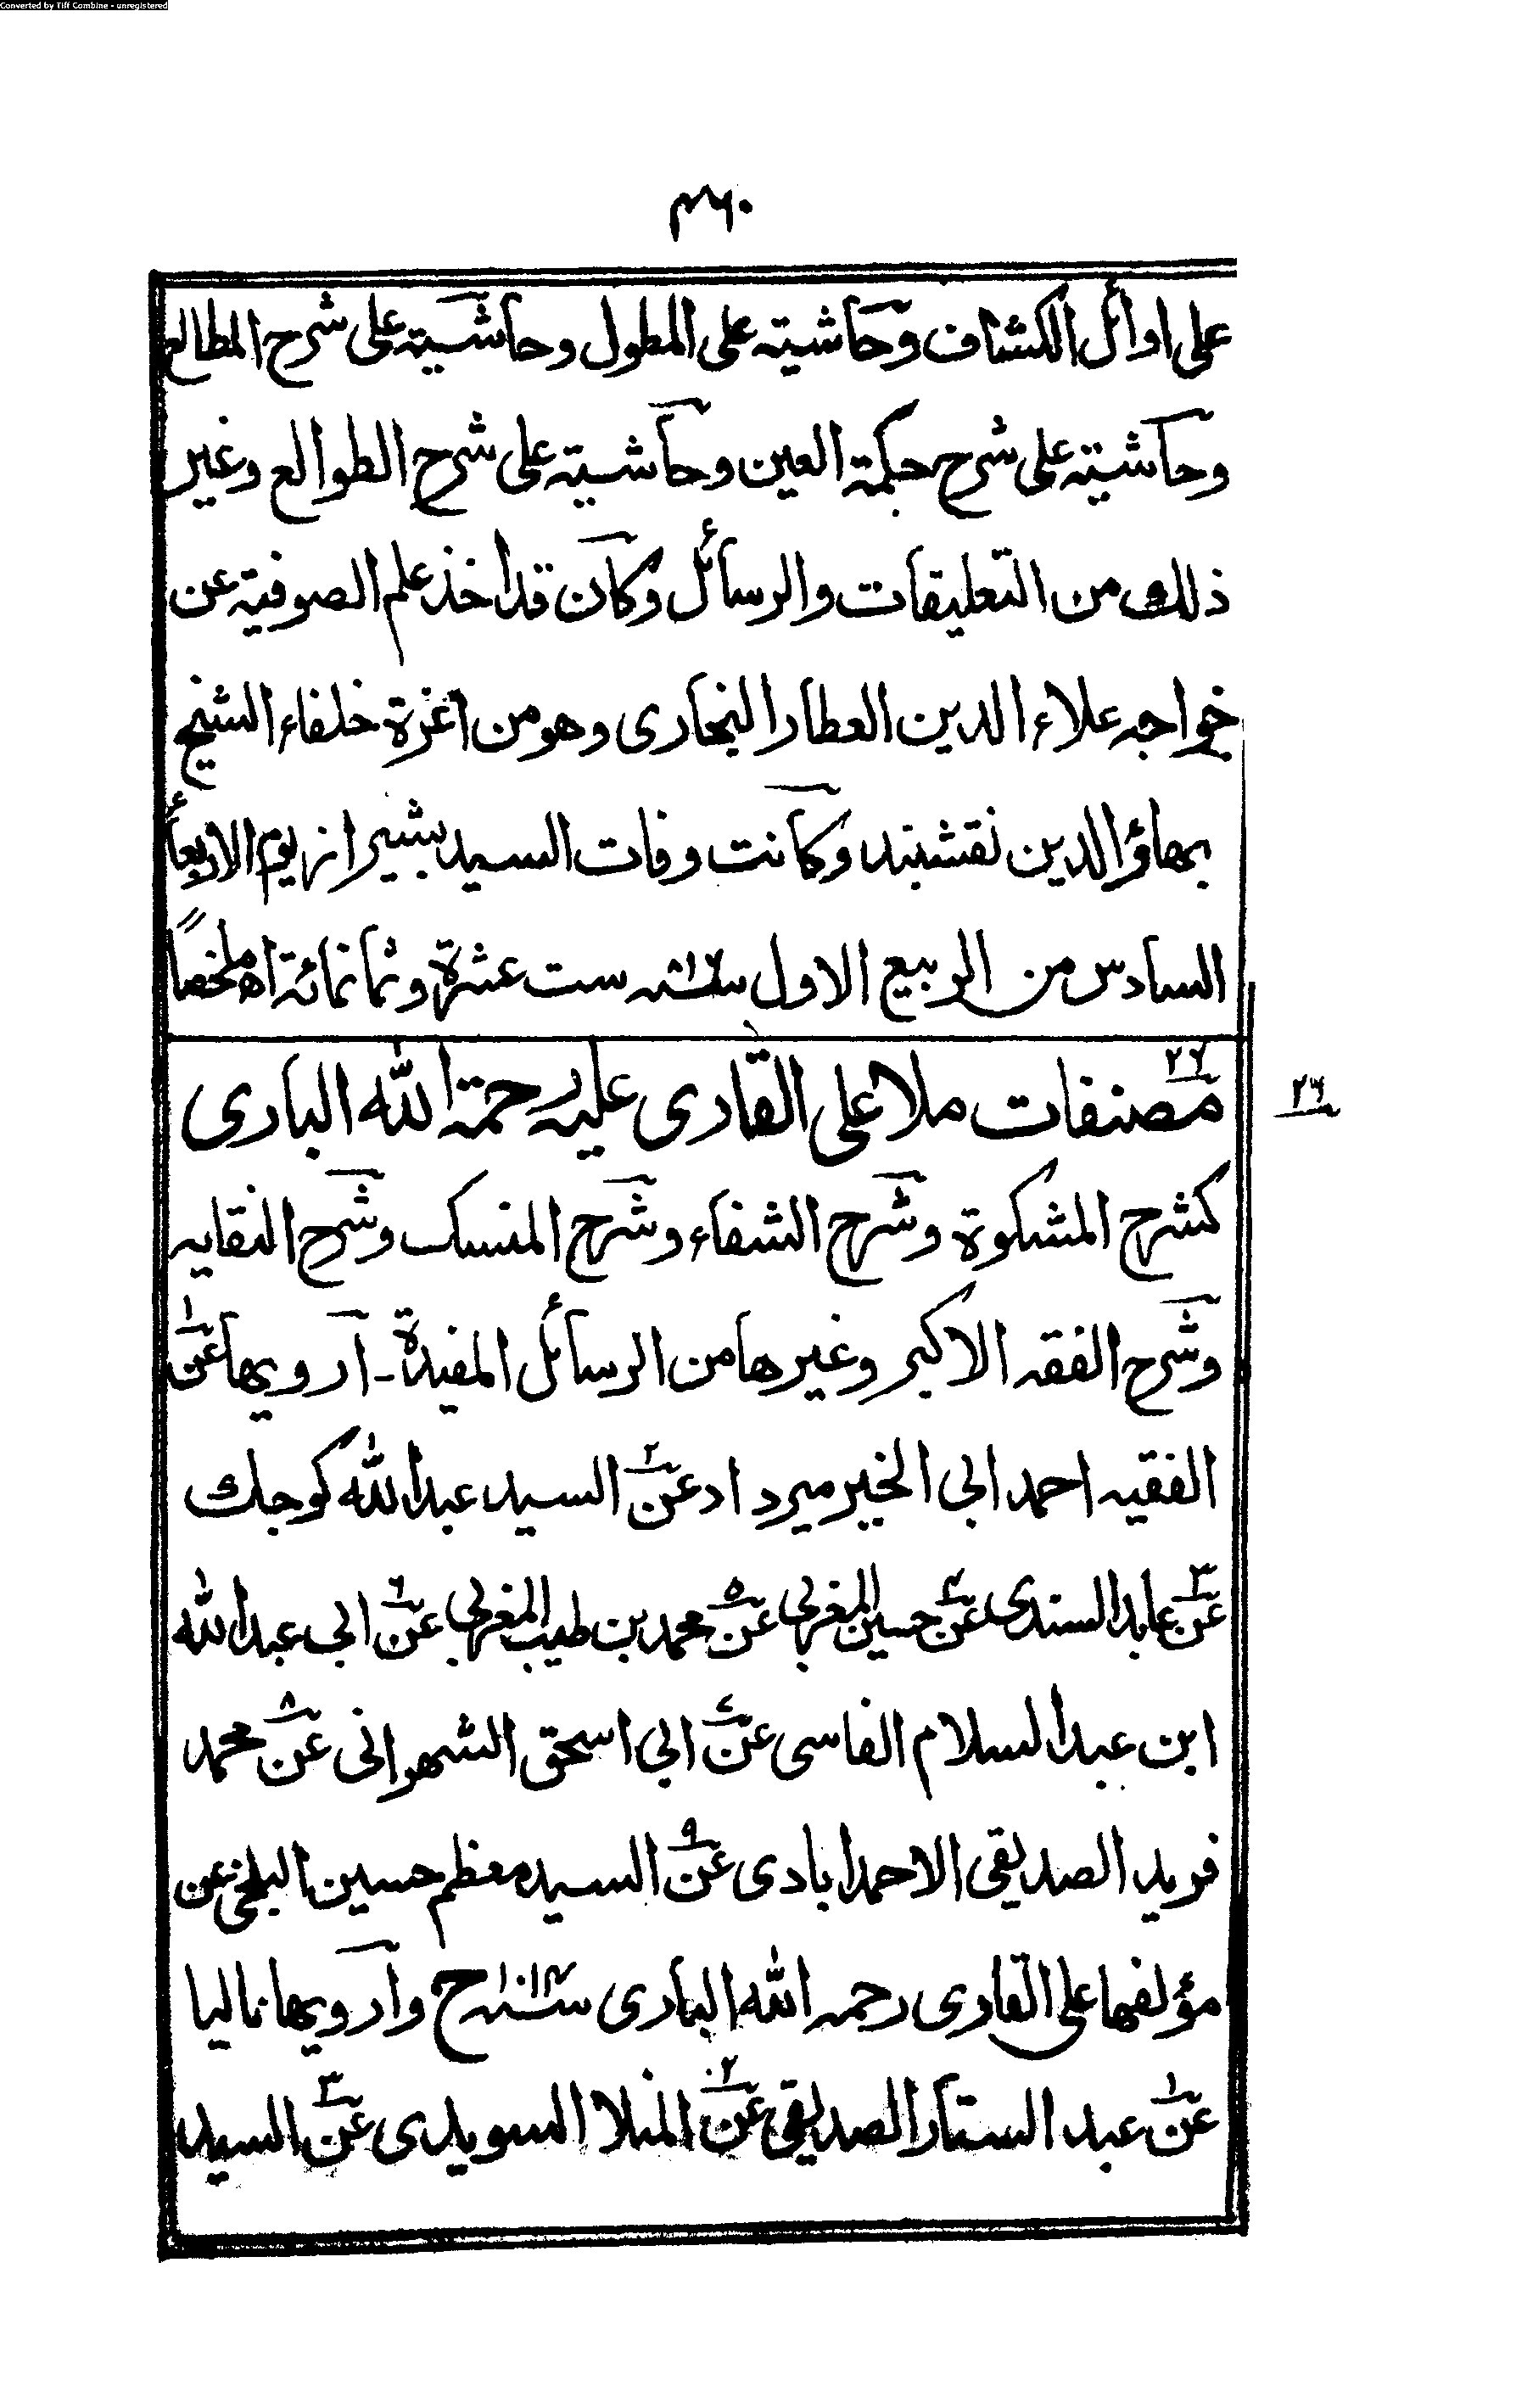 Converted by Tiff Combine - unregistered
۴۶۰
على اوائل الكشاف وحاشيته على المطول وحاشيته على شرح المطالع
وحاشيته على شرح حكمة العين وحاشيته على شرح الطوالع وغير
ذلك من التعليقات والرسائل وكان قد اخذ علم الصوفيه عن
خواجه علاء الدين العطار البخارى وهو من اعزة خلفاء الشيخ
بهاؤ الدين نقشبند وكانت وفات السيد بشيراز يوم الاربعاء
السادس من الربيع الاول سنه ۸۱۶ ست عشرة وثمانمائة اه ملخصاً
۲۶ مصنفات ملا على القارى عليه رحمة الله البارى
۲۶
كشرح المشكوة وشرح الشفاء وشرح المنسك وشرح النقايه
وشرح الفقه الاكبر وغيرها من الرسائل المفيدة ـ آرويها عن۱
الفقيه احمد ابى الخير ميرداد عن۲ السيد عبد الله كوجك
عن۳ عابد السندى عن۴ حسين المغربى عن۵ محمد بن طيب المغربى عن۶ ابى عبد الله
ابن عبد السلام الفاسى عن۷ ابى اسحق الشهرانى عن۸ محمد
فريد الصديقى الاحمدابادى عن۹ السيد معظم حسين البلخى عن
مؤلفها على القارى رحمه الله البارى سنه ۱۰۱۴ ح وآرويها ناليا
عن۱ عبد الستار الصديقى عن۲ المنلا السويدى عن۳ السيد